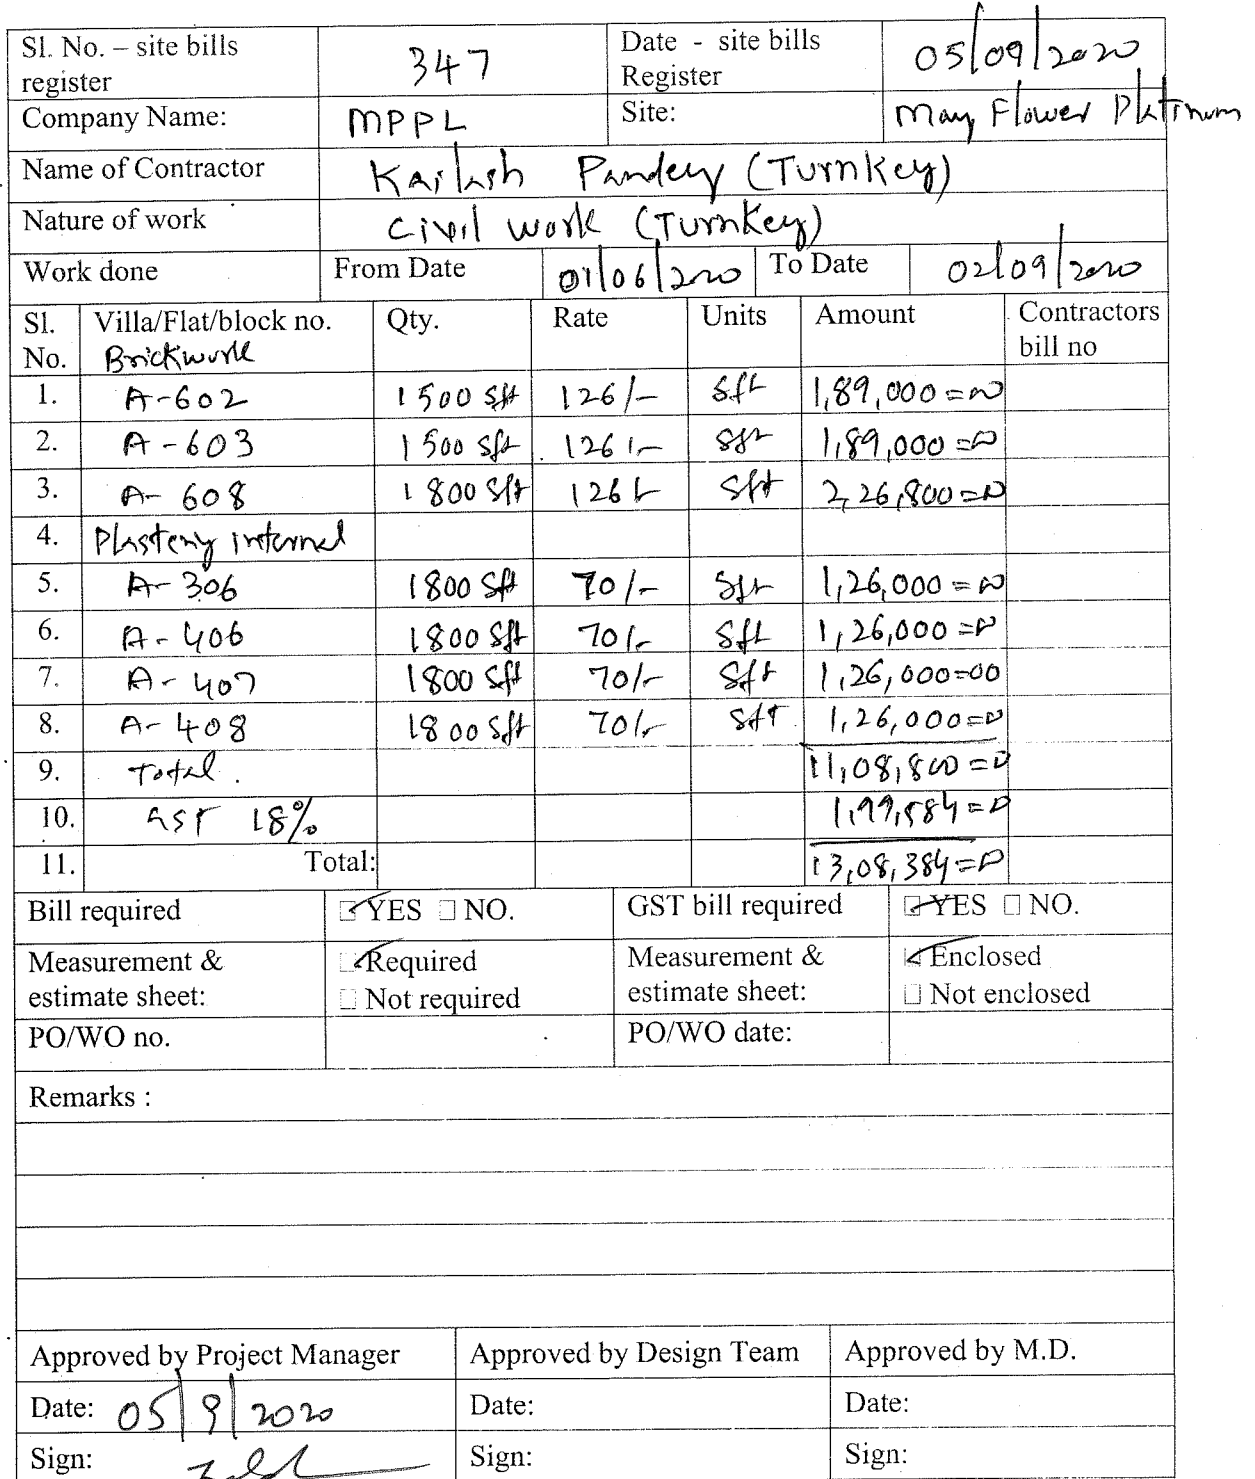 Sl. No. – site bills register 347 Date - site bills Register 05/09/2020
Company Name: MPPL Site: May Flower Platinum
Name of Contractor Kailash Pandey (Turnkey)
Nature of work Civil work (Turnkey)
Work done From Date 01/06/2020 To Date 02/09/2020
Sl. No. Villa/Flat/block no. Brickwork Qty. Rate Units Amount Contractors bill no
1. A-602 1500 sft 126/- sft 1,89,000=00
2. A-603 1500 sft 126/- sft 1,89,000=00
3. A-608 1800 sft 126/- sft 2,26,800=00
4. Plastering internal
5. A-306 1800 sft 70/- sft 1,26,000=00
6. A-406 1800 sft 70/- sft 1,26,000=00
7. A-407 1800 sft 70/- sft 1,26,000=00
8. A-408 1800 sft 70/- sft 1,26,000=00
9. Total. 11,08,800=00
10. GST 18% 1,99,584=00
11. Total: 13,08,384=00
Bill required ☑ YES ☐ NO. GST bill required ☑ YES ☐ NO.
Measurement & estimate sheet: ☑ Required ☐ Not required Measurement & estimate sheet: ☑ Enclosed ☐ Not enclosed
PO/WO no. PO/WO date:
Remarks :
Approved by Project Manager Approved by Design Team Approved by M.D.
Date: 05/9/2020 Date: Date:
Sign: Sign: Sign: